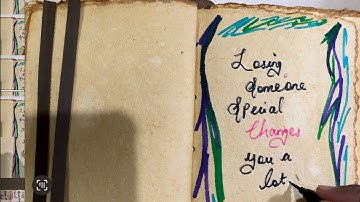 Losing
Someone
Special
Changes
you a
lot